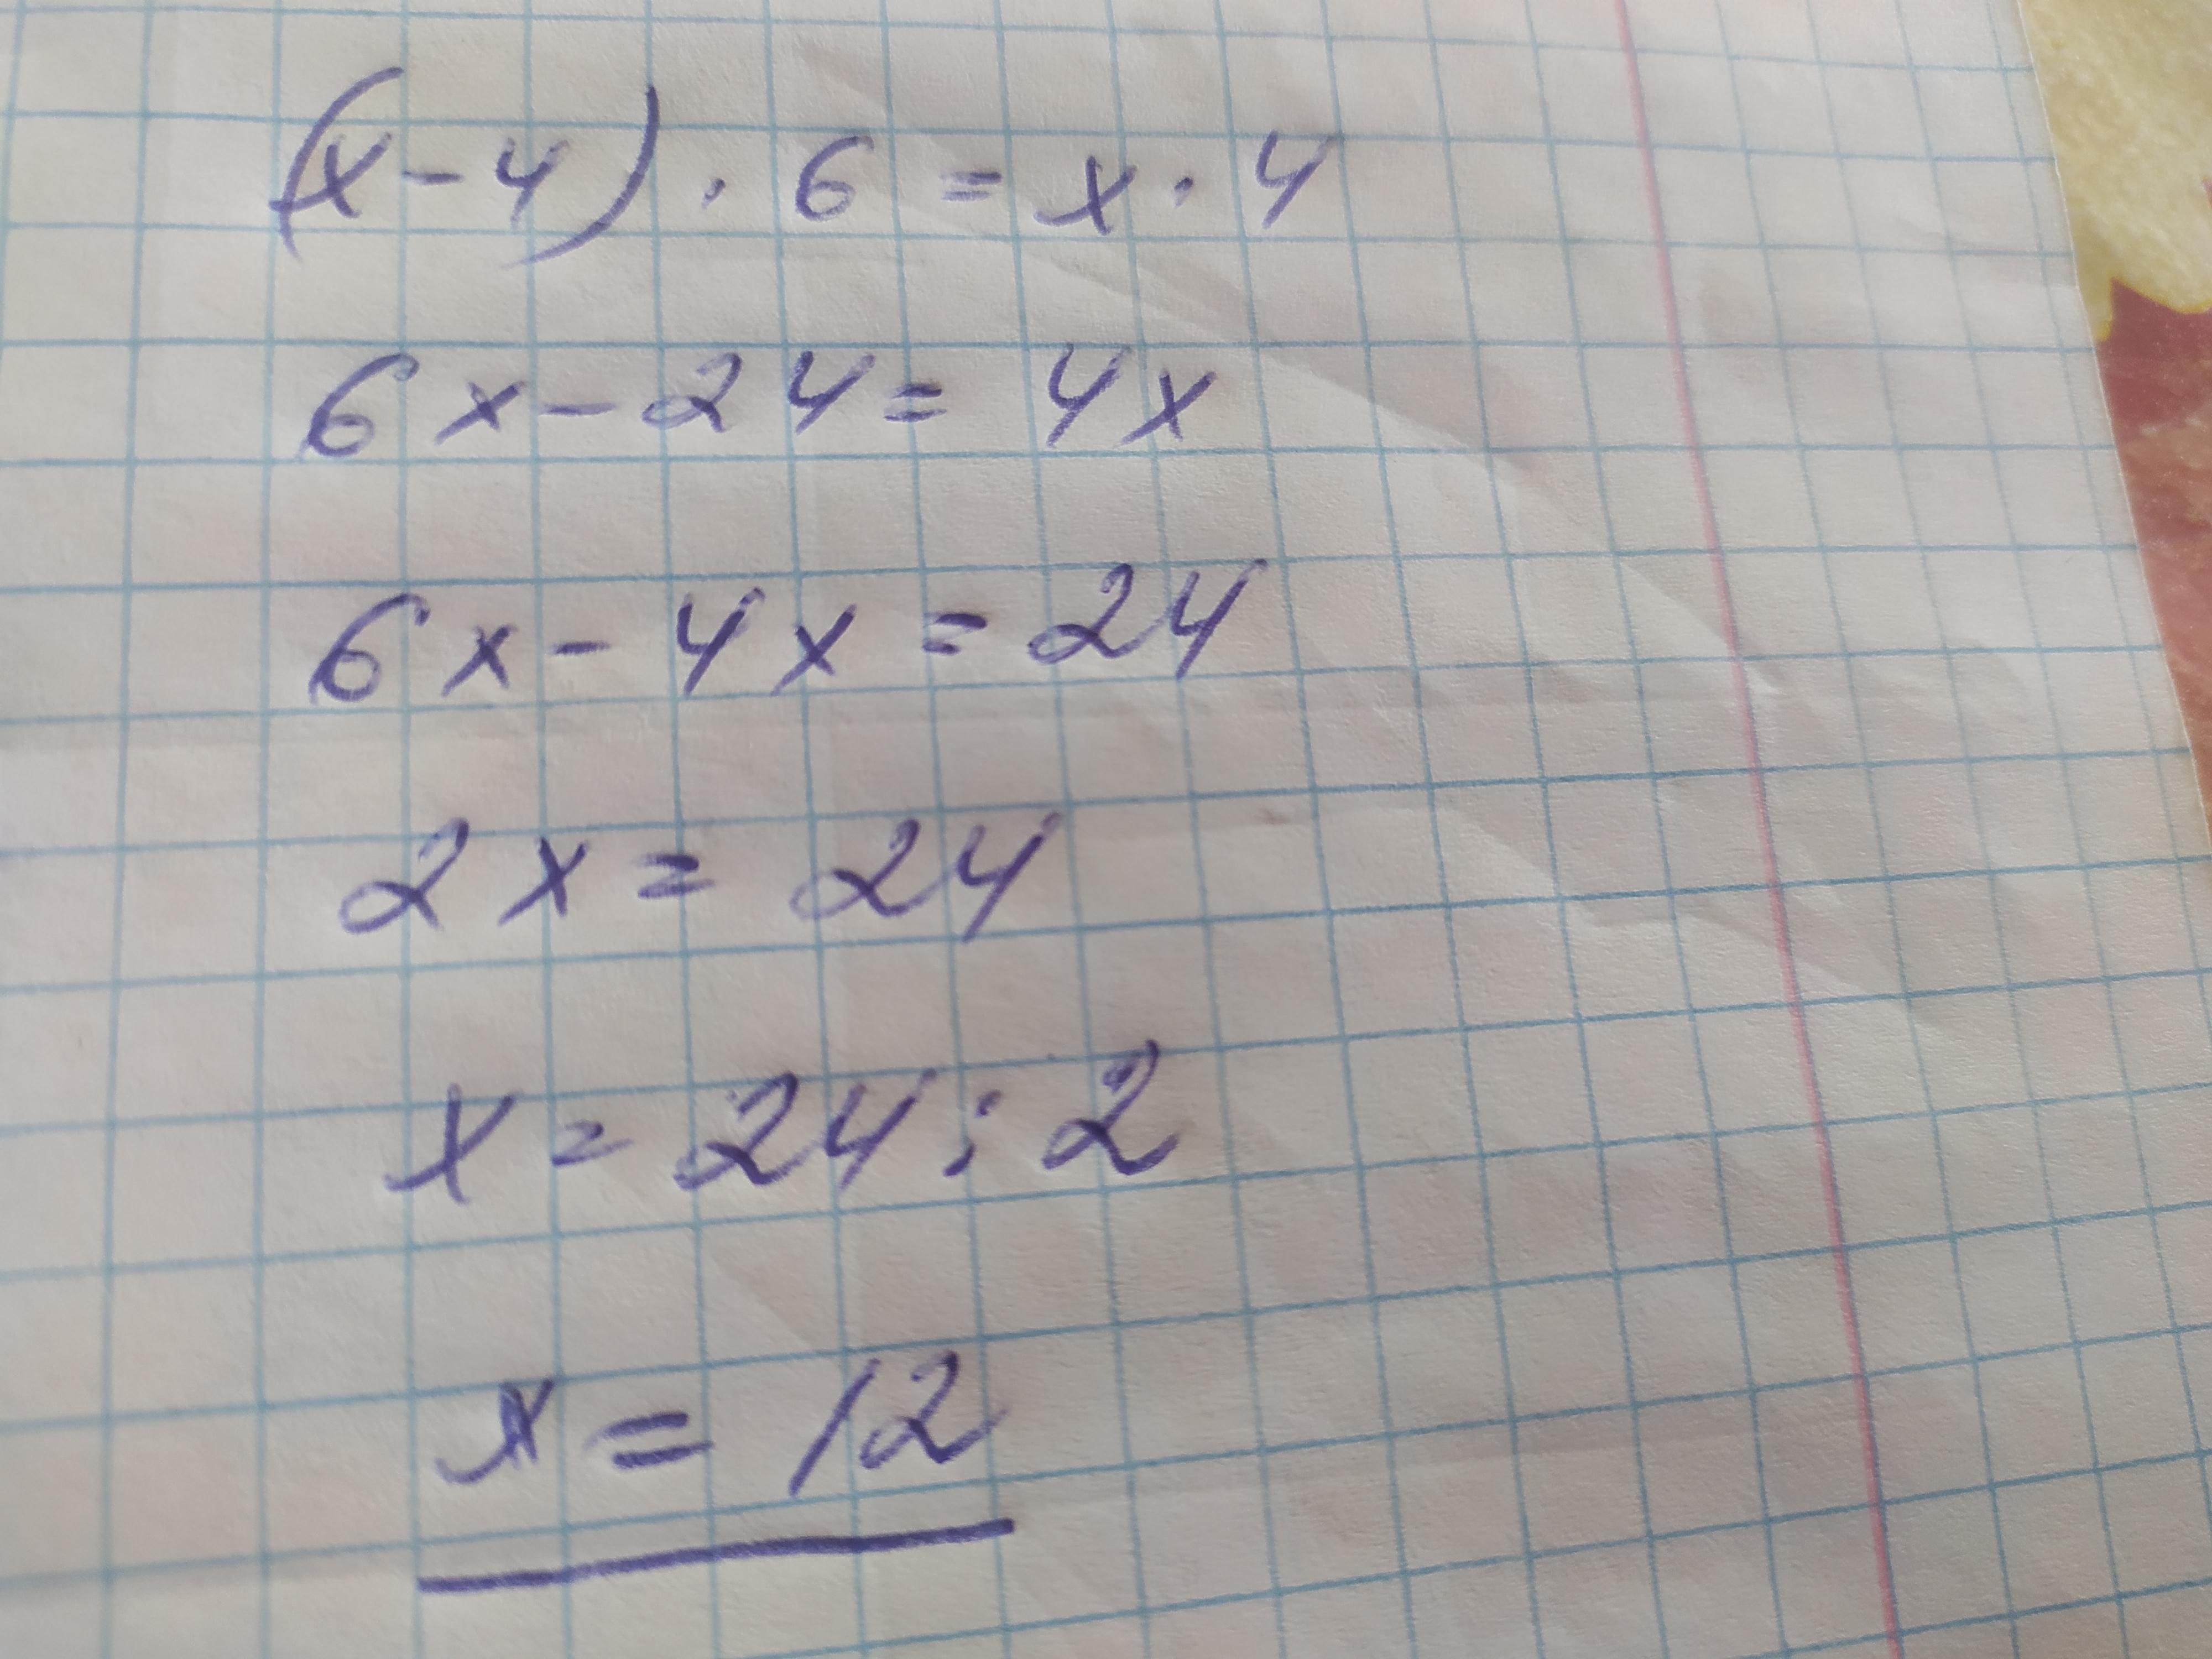 (x-4)·6=x·4
6x-24=4x
6x-4x=24
2x=24
x=24:2
x=12